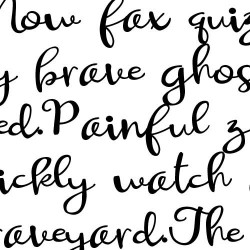 Now fax quiz
y brave ghos
ed. Painful z
ickly watch
raveyard. The